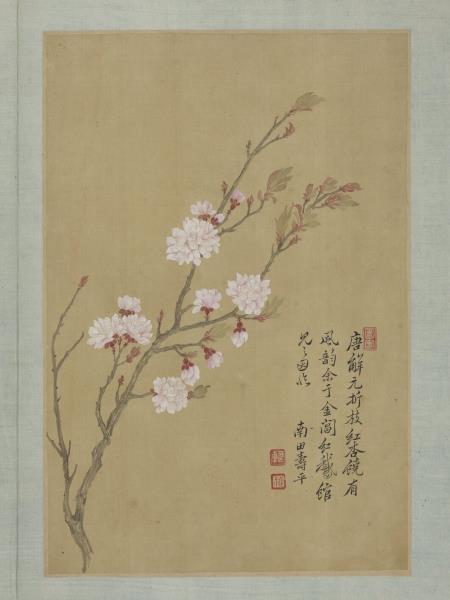 唐解元折枝紅杏饒有
風韵余于金閶紅鵞館
見之因臨
南田壽平